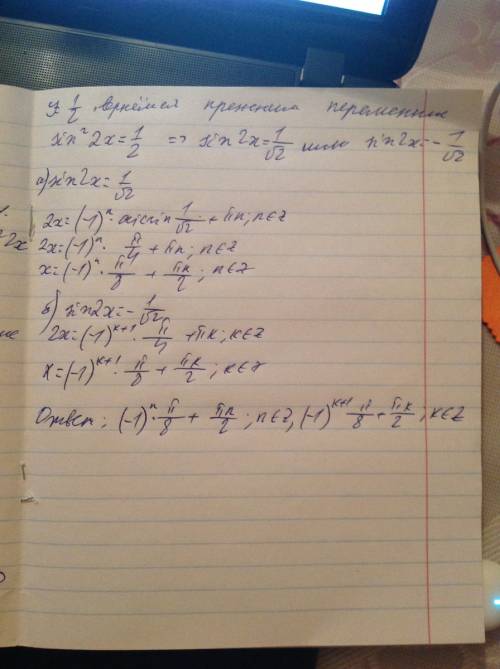 y = 1/2, вернёмся к прежним переменным
sin² 2x = 1/2 => sin 2x = 1/√2 или sin 2x = - 1/√2
а) sin 2x = 1/√2
2x = (-1)ⁿ · arcsin 1/√2 + πn; n∈Z
2x = (-1)ⁿ · π/4 + πn; n∈Z
x = (-1)ⁿ · π/8 + πn/2; n∈Z
б) sin 2x = - 1/√2
2x = (-1)ᵏ⁺¹ · π/4 + πk; k∈Z
x = (-1)ᵏ⁺¹ · π/8 + πk/2; k∈Z
Ответ: (-1)ⁿ · π/8 + πn/2; n∈Z, (-1)ᵏ⁺¹ π/8 + πk/2; k∈Z